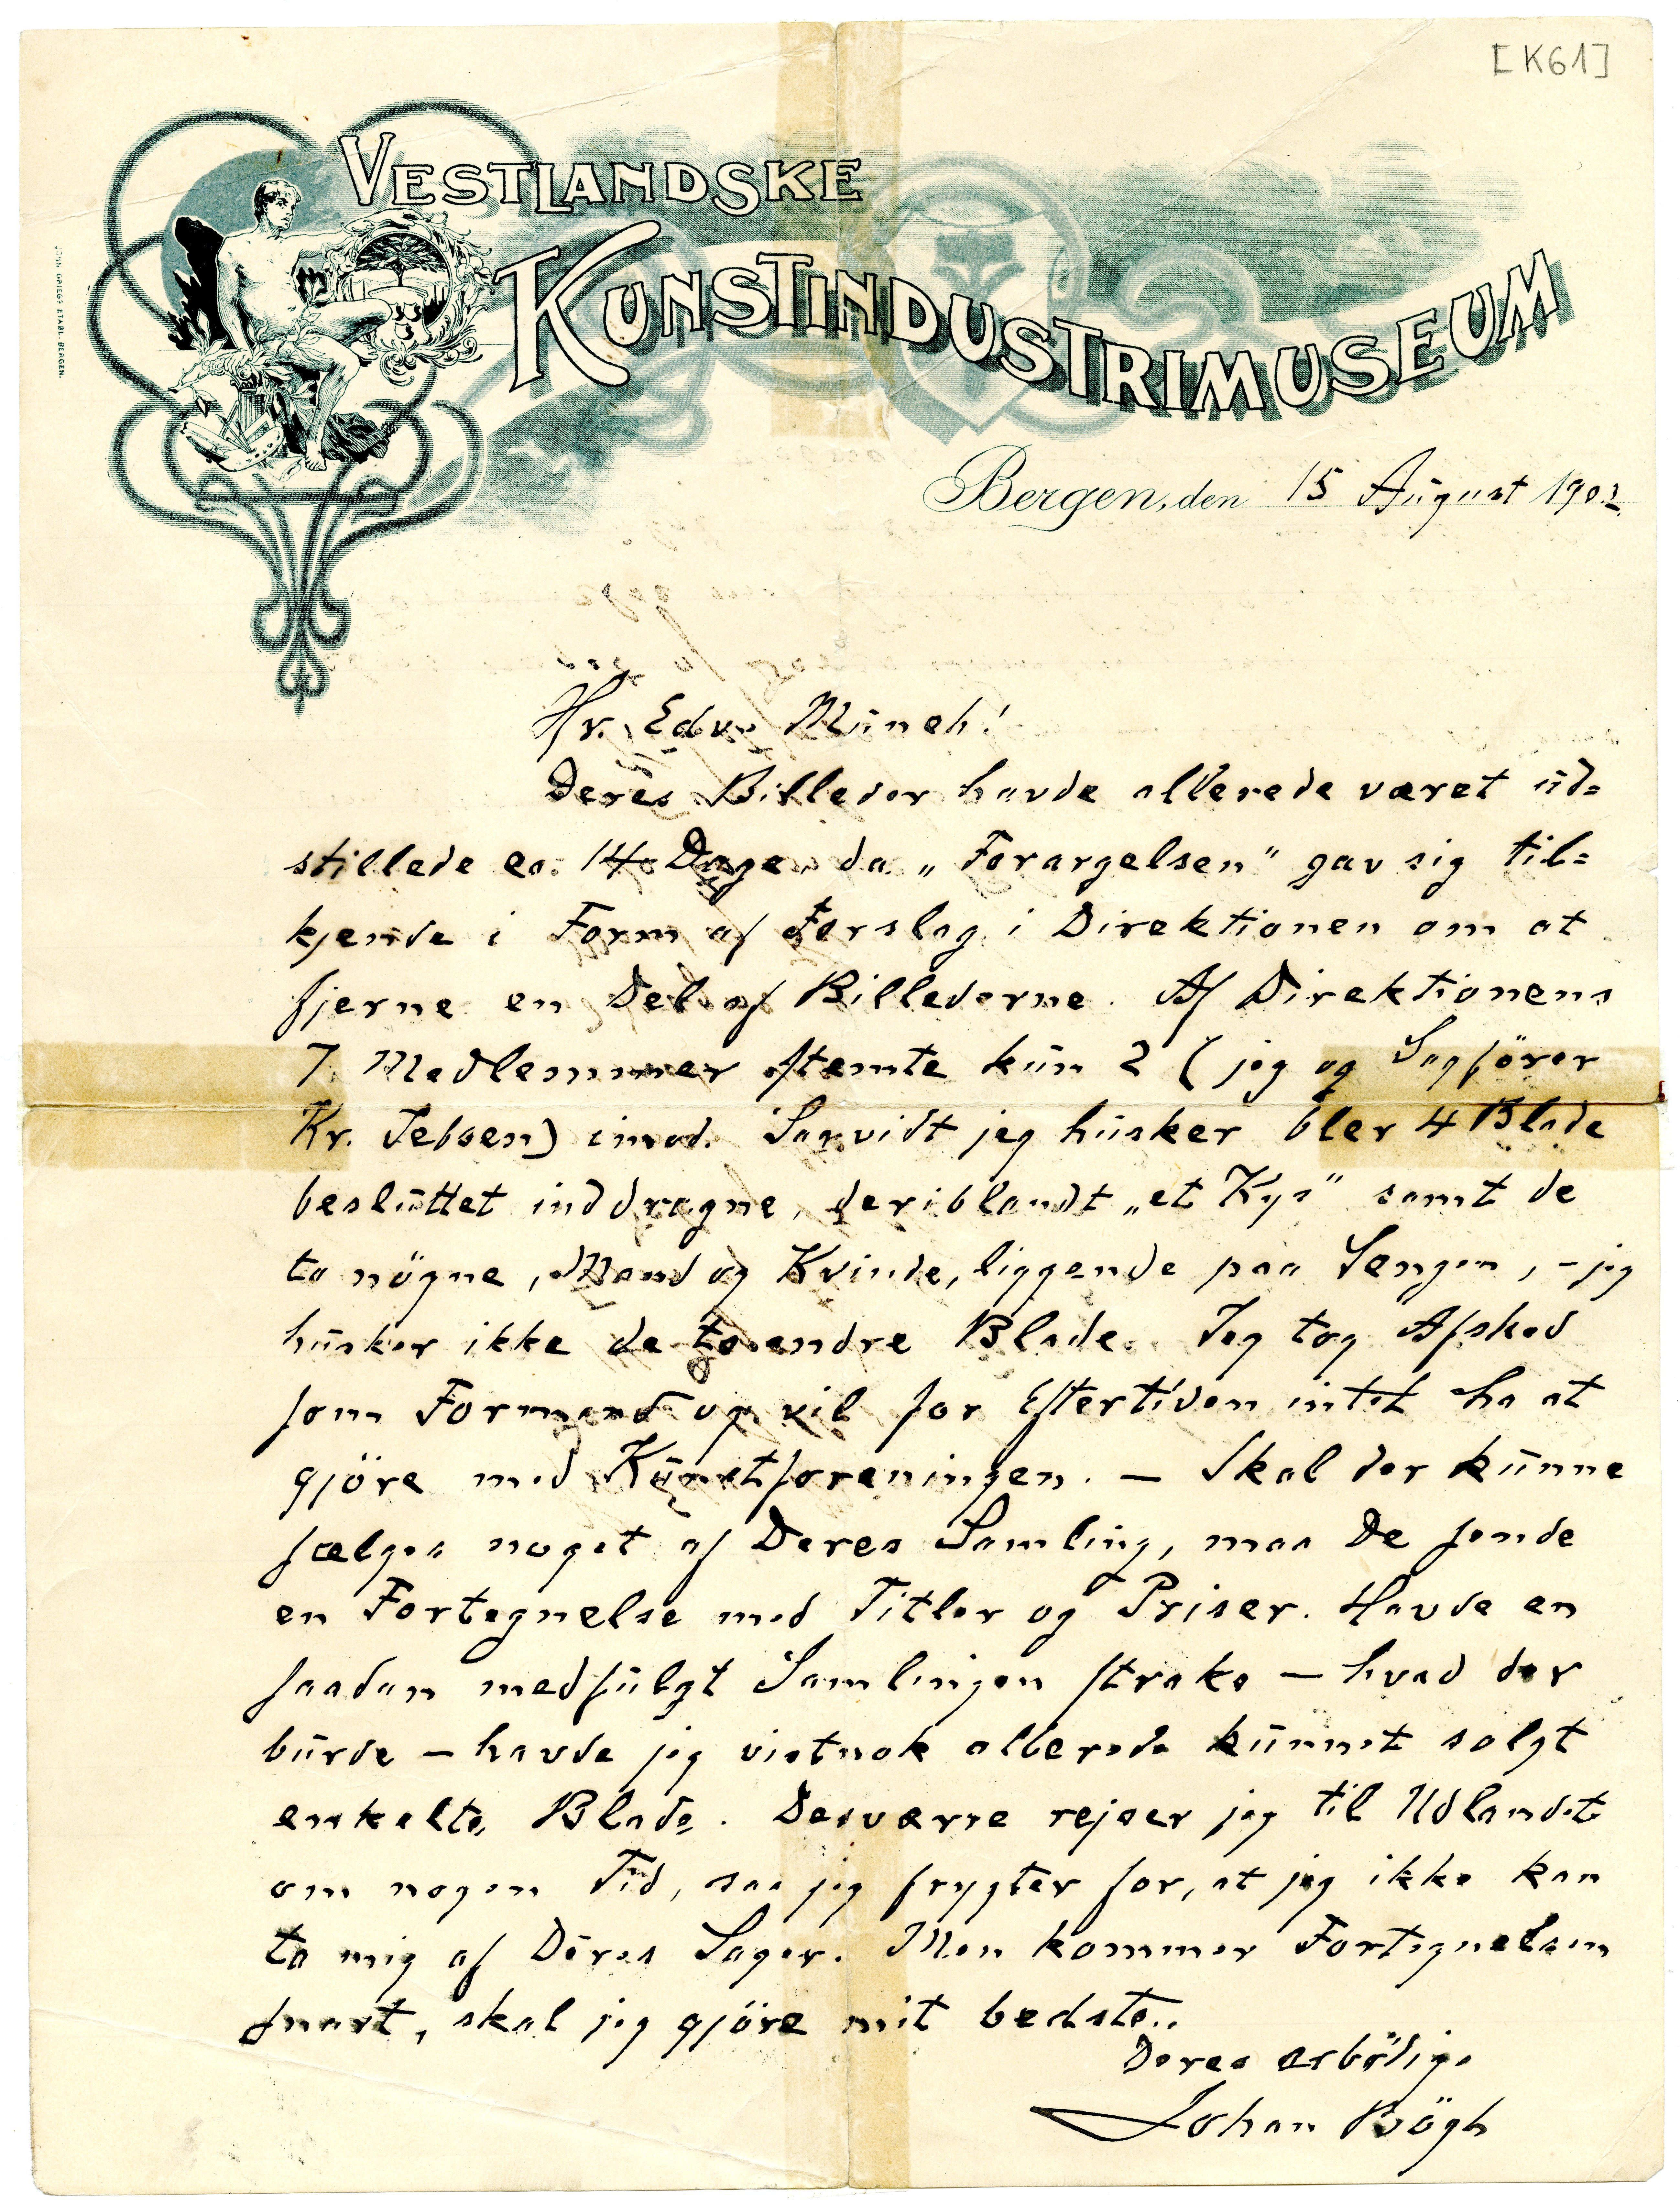 [K61]
VESTLANDSKE
KUNSTINDUSTRIMUSEUM
JOHN GRIEGS ETABL. BERGEN.
Bergen, den 15 August 1902.
Hr. Edv. Munch!
Deres Billeder havde allerede været ud=
stillede ca. 14 Dage, da „Forargelsen" gav sig til=
kjende i Form af Forslag i Direktionen om at
fjerne en Del af Billederne. Af Direktionens
7 Medlemmer stemte kun 2 (jeg og Sagförer
Kr. Jebsen) imod. Saavidt jeg husker blev 4 Blade
besluttet inddragne, deriblandt „et Kys" samt de
to nögne, Mand og Kvinde, liggende paa Sengen, – jeg
husker ikke de to andre Blade. Jeg tog Afsked
som Formand og vil for Eftertiden intet ha at
gjöre med Kunstforeningen. – Skal der kunne
sælges noget af Deres Samling, maa De sende
en Fortegnelse med Titler og Priser. Havde en
saadan medfulgt Samlingen straks – hvad der
burde – havde jeg vistnok allerede kunnet solgt
enkelte Blade. Desværre rejser jeg til Udlandet
om nogen Tid, saa jeg frygter for, at jeg ikke kan
ta mig af Deres Sager. Men kommer Fortegnelsen
snart, skal jeg gjöre mit bedste.
Deres ærbödige
Johan Bögh